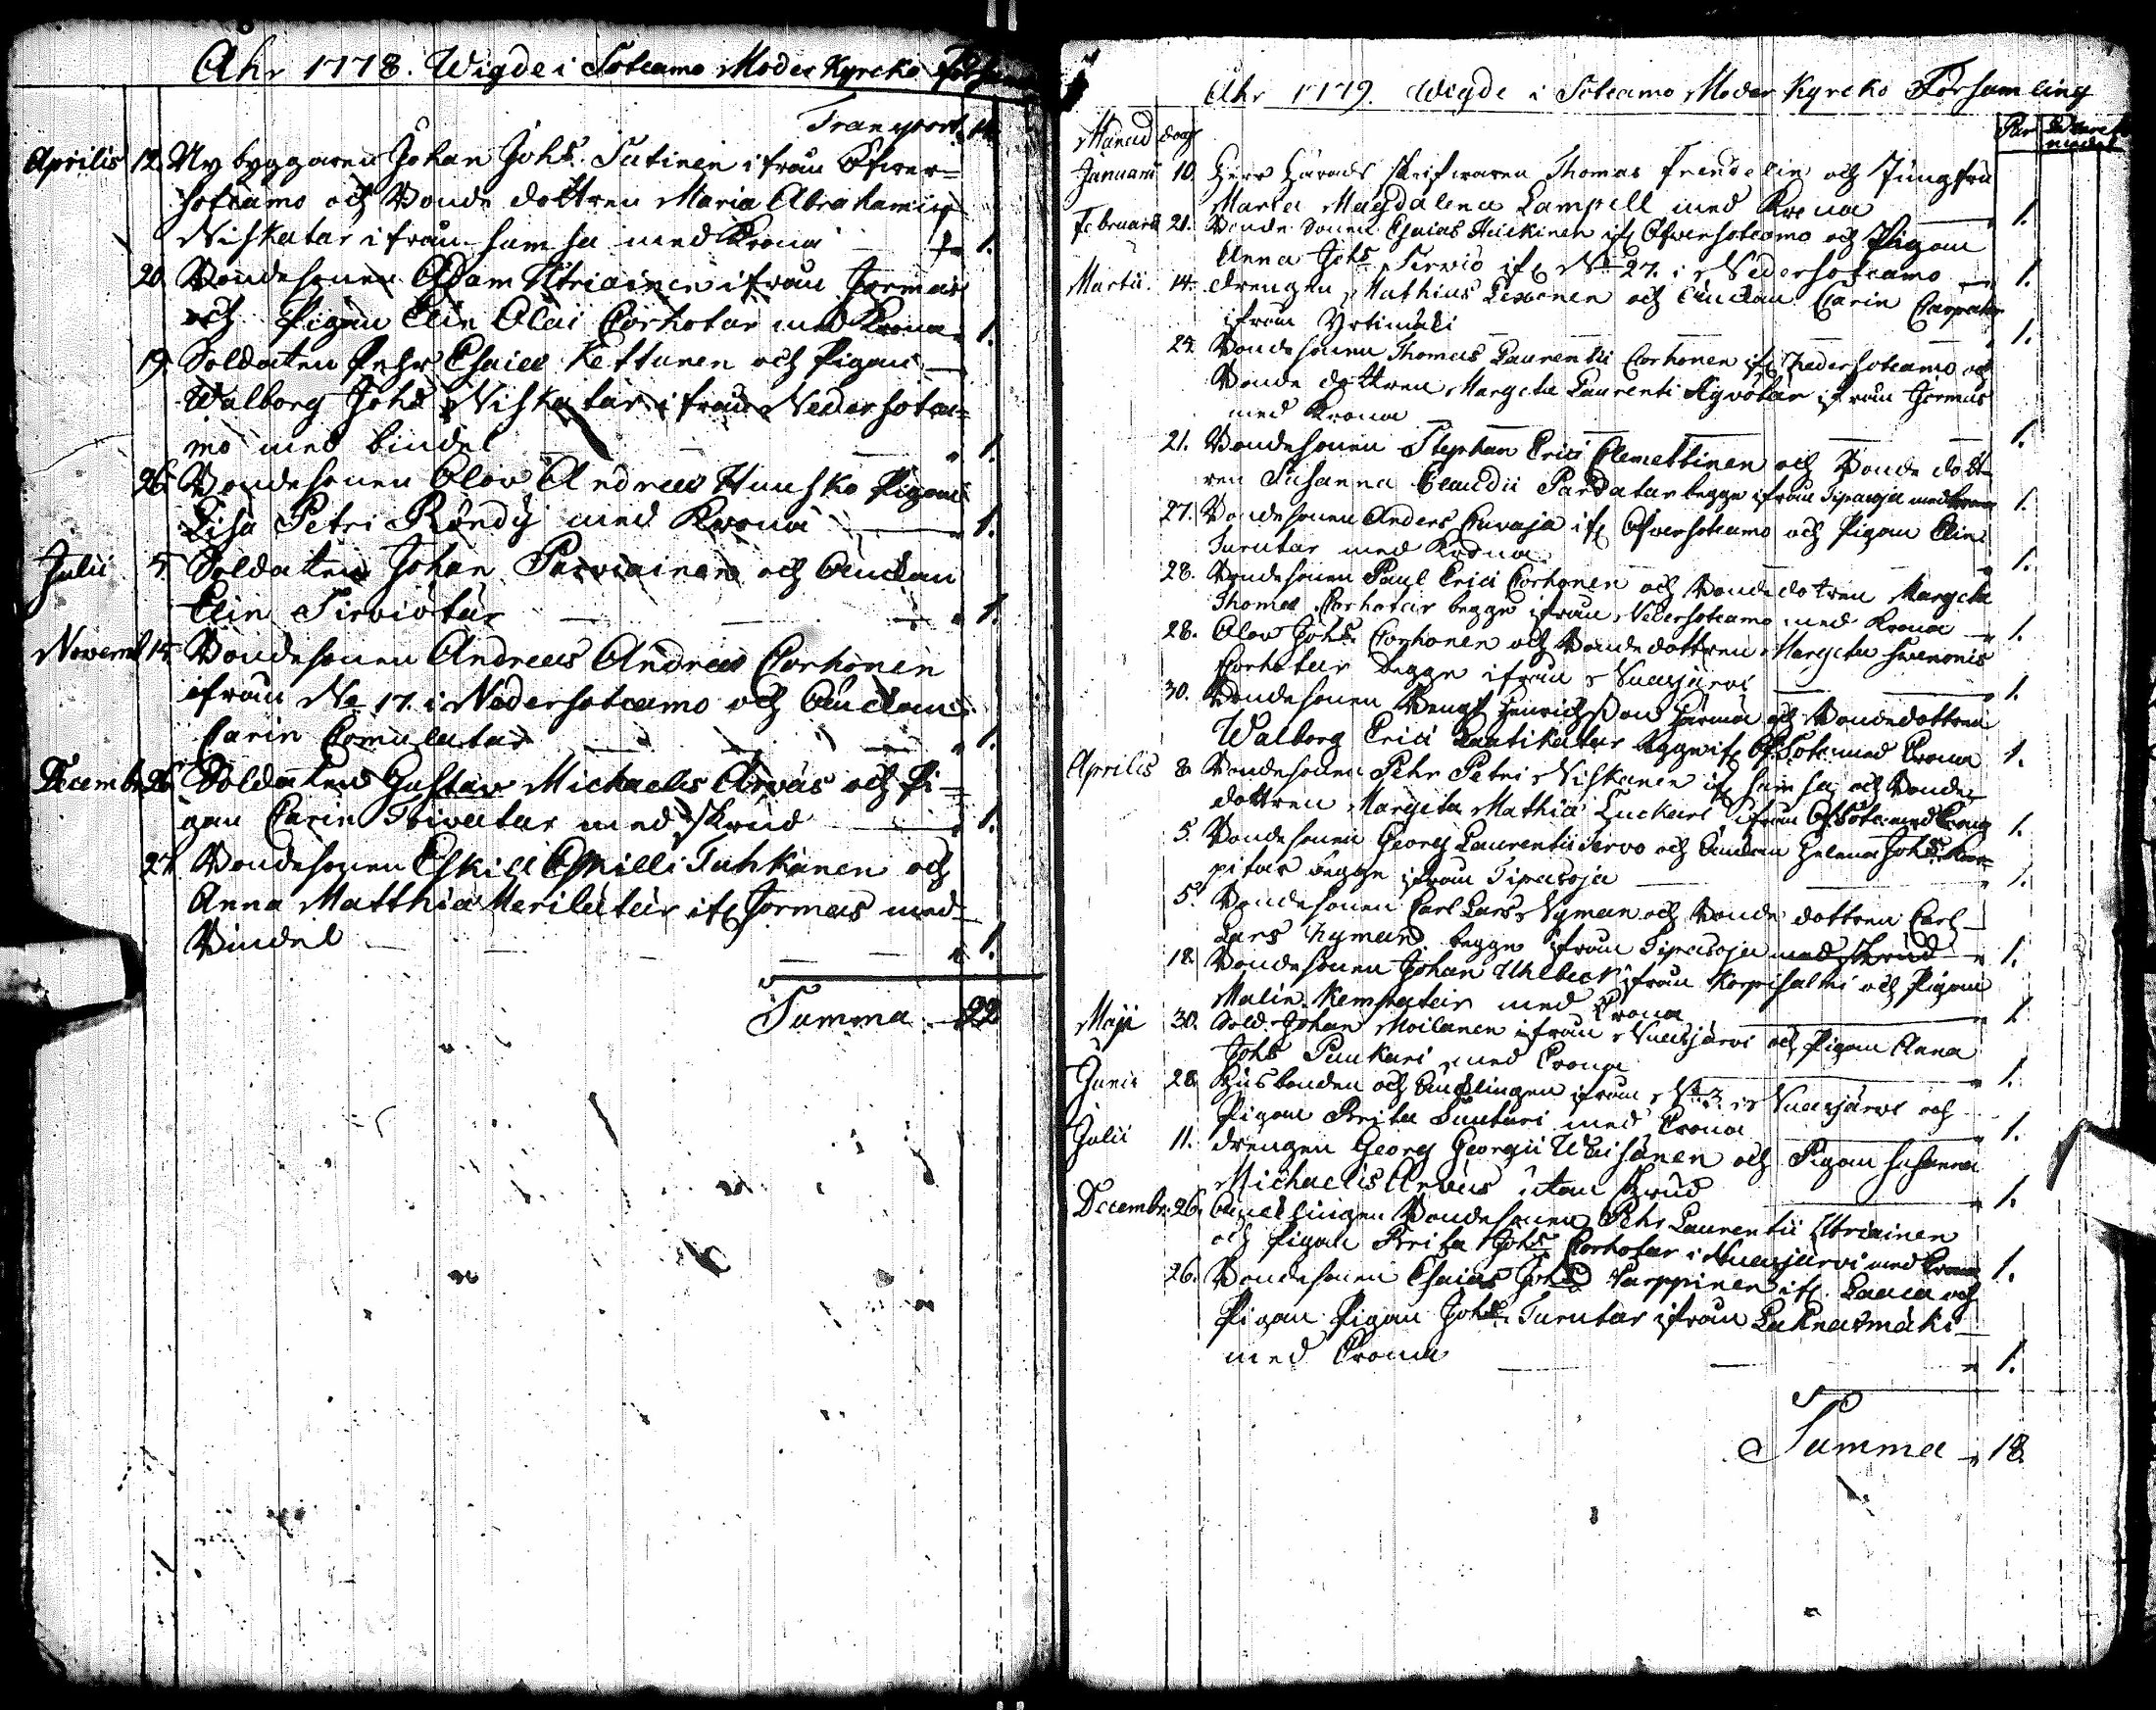 Ahr 1778. Wigde i Sotcamo Moder Kyrcko Församl
Transport 14
Aprilis 12. Ny byggaren Johan Johs. Tutinen ifrån Öfwer=
sotcamo och Bonde dottren Maria Abrahami
Niskatar ifrån Sumsa med Krona 1.
20. Bondesonen Adam Utriainen ifrån Jormas
och Pigan Elin Olai Corhotar med Krona 1.
19. Soldaten Pehr Esaiæ Kettunen och Pigan
Walborg Johs Niskatar ifrån Nedersotca=
mo med bindel 1.
26. Bondesonen Olov Andreæ Huusko Pigan
Lisa Petri Röndy med Krona 1.
Julii 5. Soldaten Johan Parviainen och Änckan
Elin Tirviötär 1.
Novemb 15. Bondesonen Andreas Andreæ Corhonen
ifrån No 17. i Nedersotcamo och Änckan
Carin Comulatar 1.
Decembr. 26. Soldaten Gustav Michaelis Arvas och Pi=
gan Carin Toivatar med skrud 1.
27. Bondesonen Eskill Eskilli Tuhkanen och
Anna Matthiæ Merilätär if Jormas med
Bindel 1.
Summa 22
Ahr 1779. Wigde i Sotcamo Moder Kyrcko Församling
Månad dag Par
Januarii 10. Herr Härads skrifwaren Thomas Frendelin och Jungfru
Maria Magdalena Lampell med Krona 1.
Februarii 21. Bonde Sonen Esaias Huckinen if Öfwersotcamo och Pigan
Anna Johs Tervio if No 27. i Nedersotcamo 1.
Martii. 14. drengen Mathias Lexonen och Änckan Carin Carpatar
ifrån Yrtimäki 1.
24. Bondesonen Thomas Laurentii Corhonen if Nedersotcamo och
Bonde dottren Margeta Laurenti Kyvötär ifrån Jormas
med Krona 1.
21. Bondesonen Stephan Erici Clemettinen och Bonde dott=
ren Susanna Claudii Pardatar begge ifrån Tipasoja med krona 1.
27. Bondesonen Anders Cuvaja if Öfversotcamo och Pigan Elin
Turutar med Krona 1.
28. Bondesonen Paul Erici Corhonen och Bondedotren Margeta
Thomæ Corhotar begge ifrån Nedersotcamo med Krona 1.
28. Olov Johs. Corhonen och Bondedottren Margeta Swenonis
Corhotar begge ifrån Nuasjärvi 1.
30. Bondesonen Bengt Henrichsson Härmä och Bondedottren
Walborg Erici Raatikatar begge if Öf. Sotc. med Crona 1.
Aprilis 8. Bondesonen Pehr Petri Niskanen if Sumsa och Bonde
dottren Margeta Mathiæ Luckari ifrån Öf. Sotc. med Crona 1.
5. Bondesonen Georg Laurentii Servo och Änckan Helena Johs. Kor=
pitar begge ifrån Tipasoja 1.
5. Bondesonen Carl Lars Nyman och Bonde dottren Carl
Lars Nyman begge ifrån Tipasoja med skrud 1.
18. Bondesonen Johan Uhlbeck ifrån Korpisalmi och Pigan
Malin Kempatar med Krona 1.
Maji 30. Sold. Johan Moilanen ifrån Nuasjärvi och Pigan Anna
Johs Punkari med Crona 1.
Junii 28. Husbonden och Äncklingen ifrån No 3. i Nuasjärvi och
Pigan Brita Suutari med Crona 1.
Julii 11. drengen Georg Georgii Väisänen och Pigan Susanna
Michaelis Arvas utan skrud 1.
Decembr. 26. Äncklingen Bondesonen Pehr Laurentii Utriainen
och Pigan Brita Johs Corhotar i Nuasjärvi med Crona 1.
26. Bondesonen Esaias Johs Karppinen if. Laaca och
Pigan Pigan Johs. Turutar ifrån Laknasmäki
med Crona 1.
Summa 18.